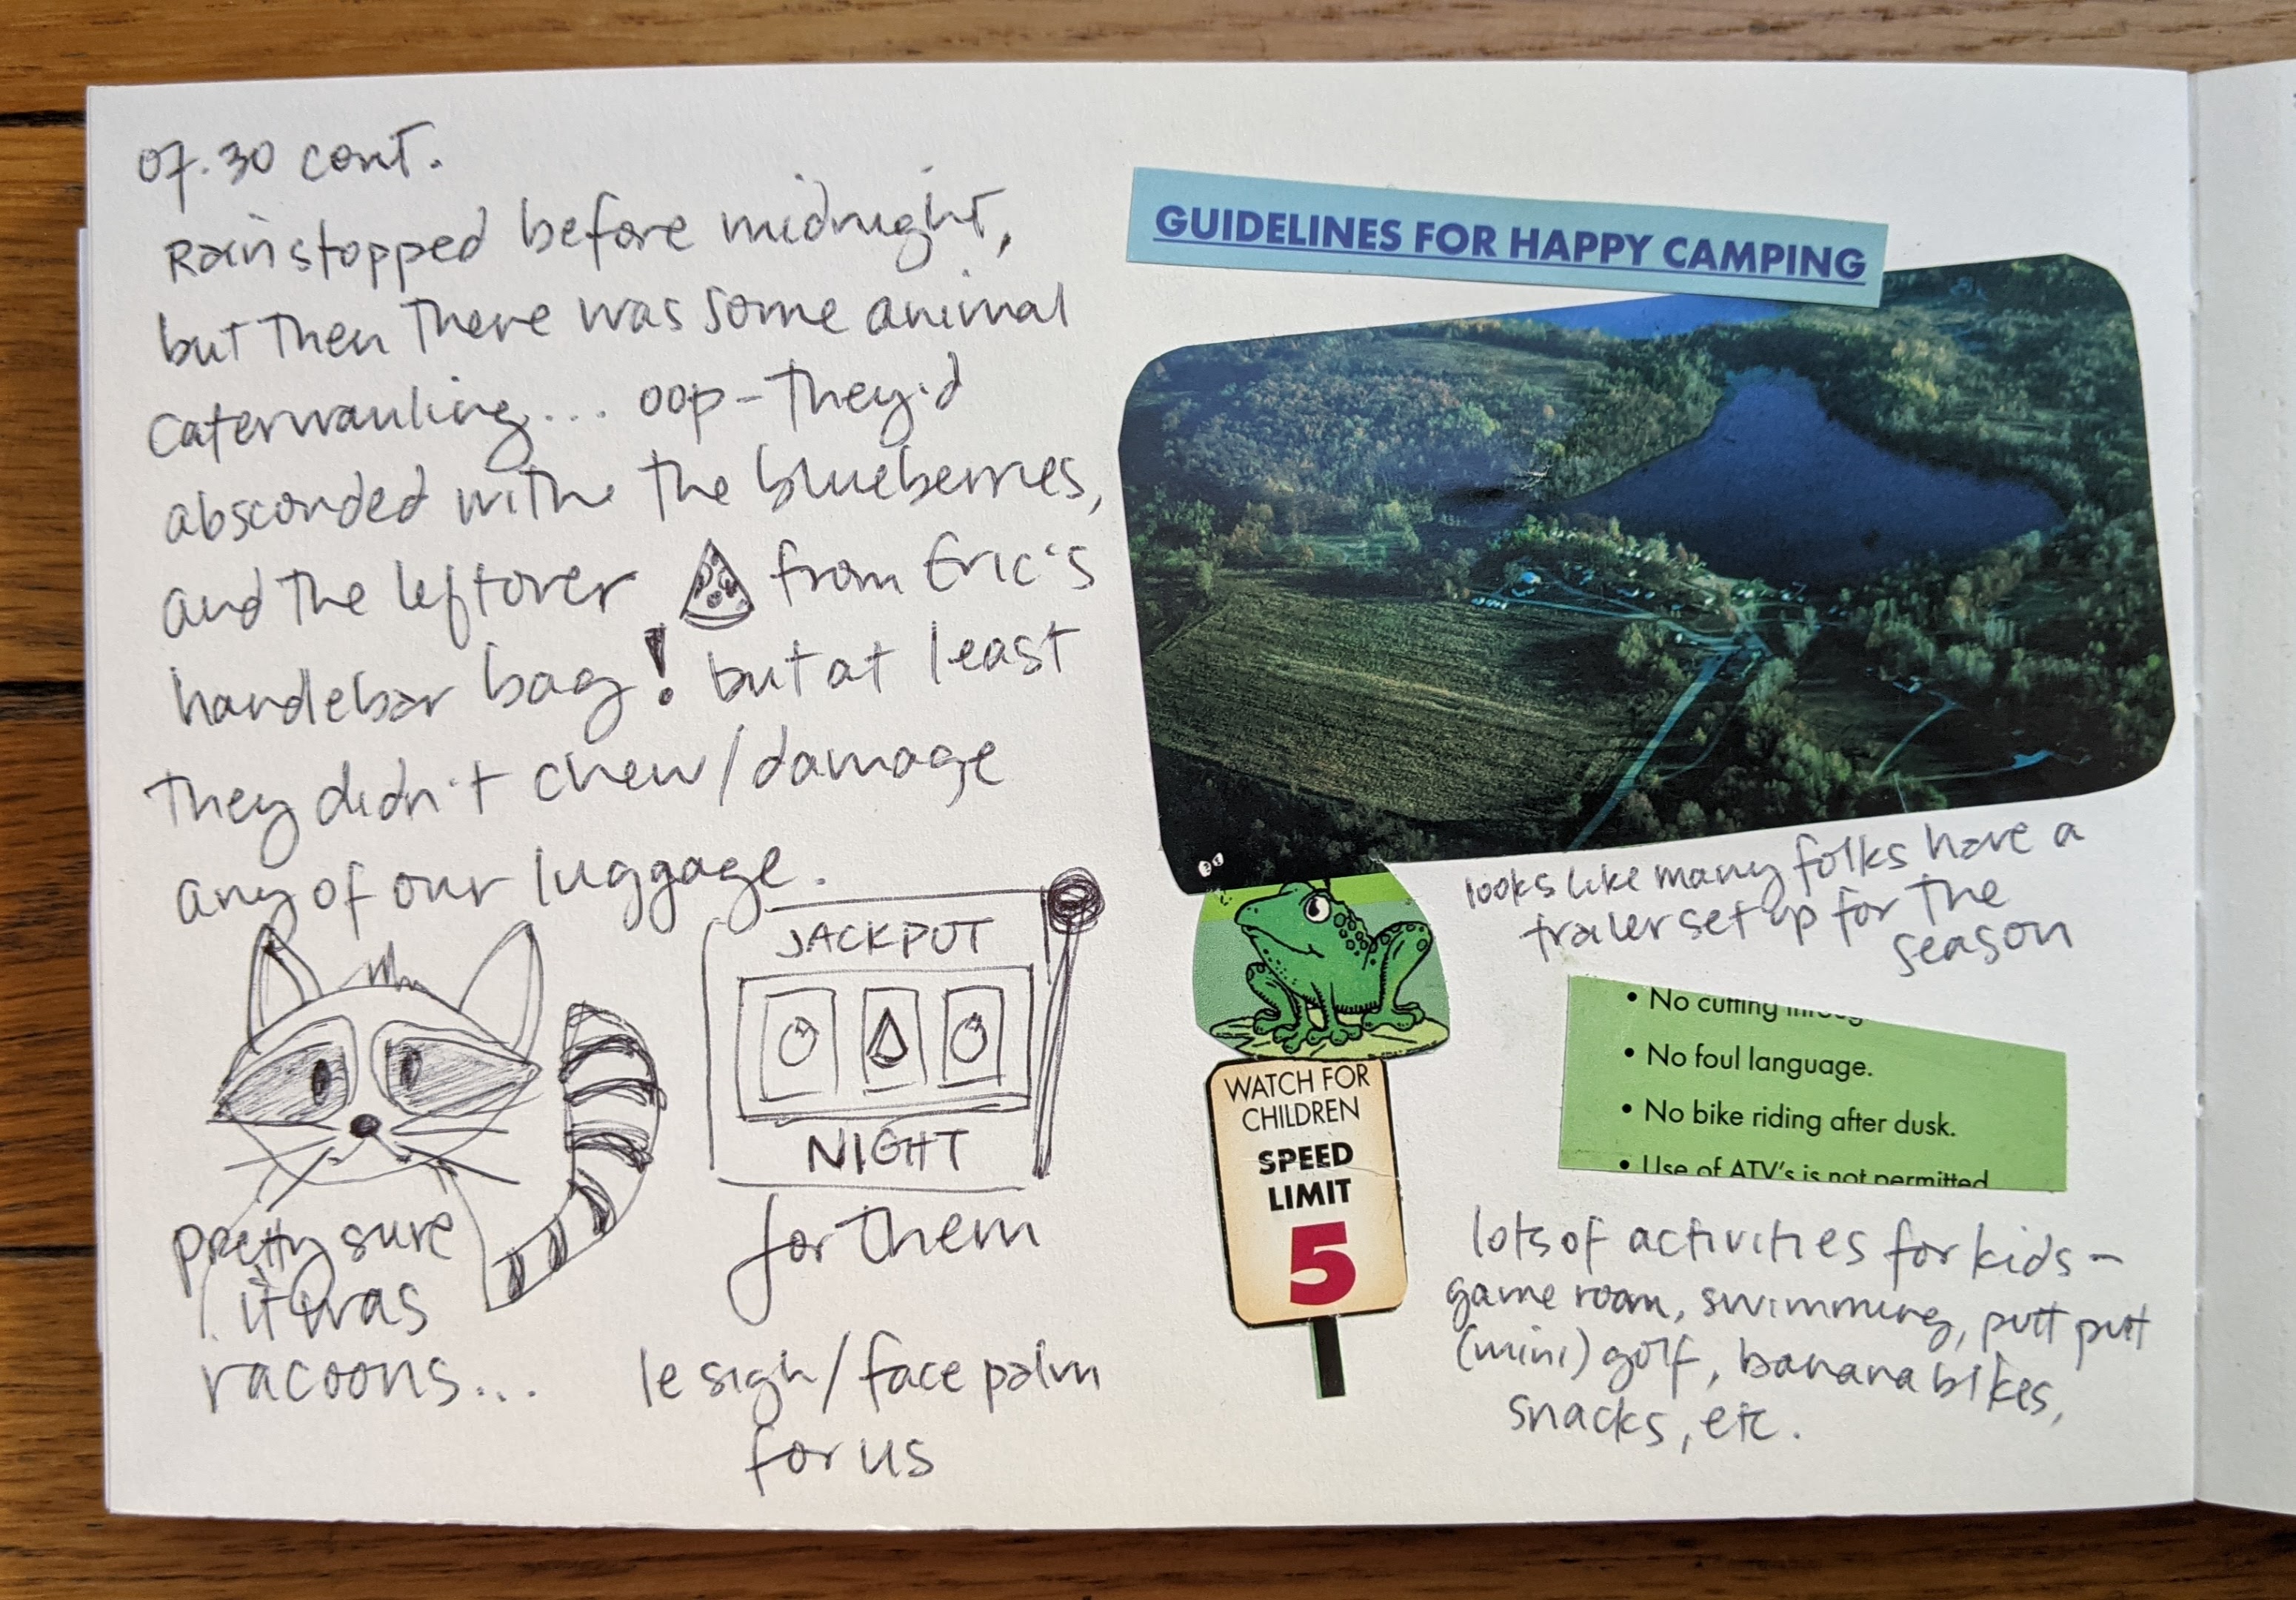 07.30 cont.
Rain stopped before midnight,
but then there was some animal
caterwauling... oop - they'd
absconded with the blueberries,
and the leftover from Eric's
handlebar bag! but at least
they didn't chew/damage
any of our luggage.
JACKPOT
NIGHT
for them
pretty sure
it was
racoons...
le sigh/face palm
for us
GUIDELINES FOR HAPPY CAMPING
looks like many folks have a
trailer set up for the
season
WATCH FOR
CHILDREN
SPEED
LIMIT
5
• No cutting through
• No foul language.
• No bike riding after dusk.
• Use of ATV's is not permitted
lots of activities for kids -
game room, swimming, putt putt
(mini) golf, banana bikes,
snacks, etc.